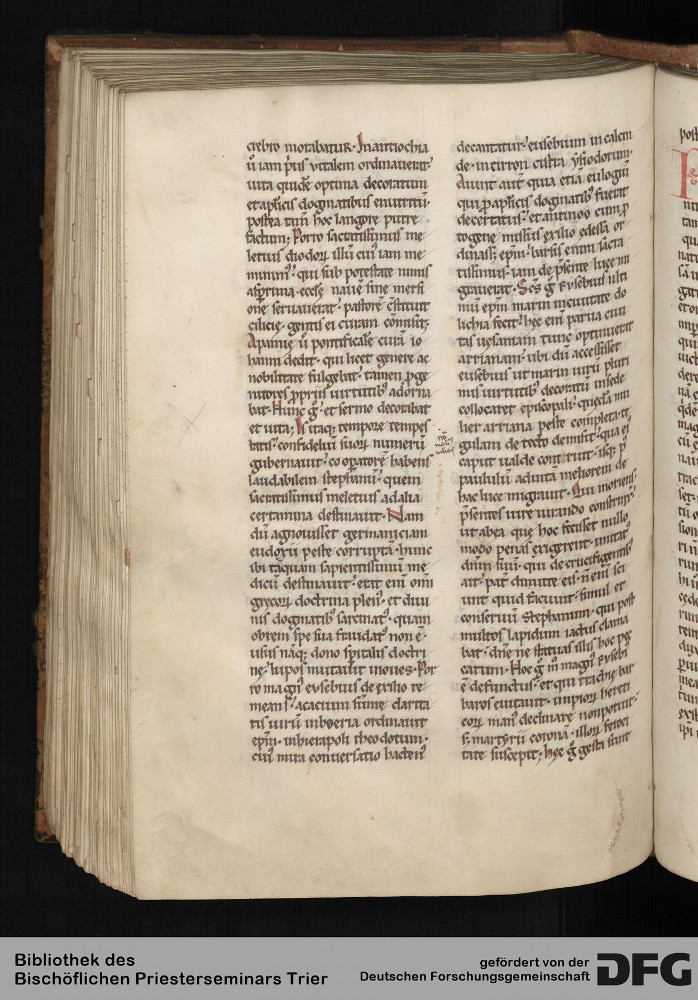 crebro morabatur. In antiochia
ũ iam p̃us vitalem ordinauerat
uita quidẽ optima decoratum
et apl̃icis dogmatibus enutritũ
postea tam̃ hoc langore putre
factum; Porro sacratissimus me
letius diodorũ illũ cuius iam me
minimus qui sub potestate nimis
asperrima eccl̃e nauẽ sine mersi
one seruauerat. pastorẽ c̃stituit
cilicie. gentis ei curam cõmisit;
Apamie ũ pontificalẽ curã io
hanni dedit. qui licet genere ac
nobilitate fulgebat. tamen p̱ge
nitores p̱priis uirtutibꝰ adorna
bat. Hunc g̊ et sermo decorabat
et uita; Is itaq; tempore tempes
tatis. confideliũ suorũ numerũ
gubernauit. cooperatorẽ habens
laudabilem stephanũ. quem
sacratissimus meletius ad alia
certamina destinauit. Nam
dũ agnouisset germaniciam
eudoxii peste corruptã. hunc
ibi tãquam sapientissimum me
dicũ destinauit. erat enĩ omĩ
grecorũ doctrina plenꝰ. et diui
nis dogmatibꝰ sarcinatꝰ. quam
obrem spe sua fraudatꝰ non ẽ.
usus nãq; dono sp̃italis doctri
nę. lupos mutauit in oues. Por
ro magnꝰ eusebius de exilio re
means. acacium sũme clarita
tis uirũ in boeria ordinauit
ep̃m. in hierapoli theodotum.
cuiꝰ mira conuersatio hactenꝰ
decantatur. eusebium in calcin
de. in cirron cultia ysidorum.
Aiunt aut̃ quia etiã eulogiũ
qui p̱ apl̃icis dogmatibꝰ fuerat
decertatus. et antinoo cum p̱
togene missus exilio edessã or
dinasset ep̃m. barsis enim sacra
tissimus. iam de p̃sente luce mi
grauerat. Sc̃s g̊ eusebius ulti
mũ ep̃m marin in ciuitate do
lichia fecit. hęc enĩ parua ciui
tas uesaniam tunc optinuerat
arrianam. ubi dũ accessisset
eusebius ut marin uirũ pluri
mis uirtutibꝰ decoratũ in sede
collocaret episcopali. quędã mu
lier arriana peste completa. te
gulam de tecto demisit. qua ei
caput ualde contriuit. isq; pꝰ
paululũ ad uitã meliorem de
hac luce migrauit. Qui moriens.
p̃sentes iure iurando constrinxit
ut ab ea que hoc fecisset nullo
modo penas exigerent. imitatꝰ
dñm suũ. qui de crucifigentibꝰ
ait. pat̃ dimitte eis. ñ enĩ sci
unt quid faciunt. simul et
conseruũ Stephanum. qui post
multos lapidum iactus clama
bat. dñe ne statuas illis hoc pec
catum. Hoc g̊ m̊ magnꝰ eusebi
ẽ defunctus. et qui trachię bar
baros euitauit. impiorũ hereti
corũ manꝰ declinare non potuit.
s; martyrii coronã. illorũ feroci
tate suscepit; hęc g̊ gesta sunt
Bibliothek des
Bischöflichen Priesterseminars Trier
gefördert von der
Deutschen Forschungsgemeinschaft
DFG